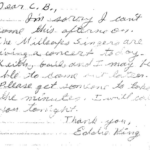 Dear C.B.,
I'm sorry I can't
come this afternoon.
The Milcaps Singers are
giving a concert today.
built and I may be
able to come out later.
Please get someone to take
the minutes. I will call
you tonight.
Thank you,
Eddie King